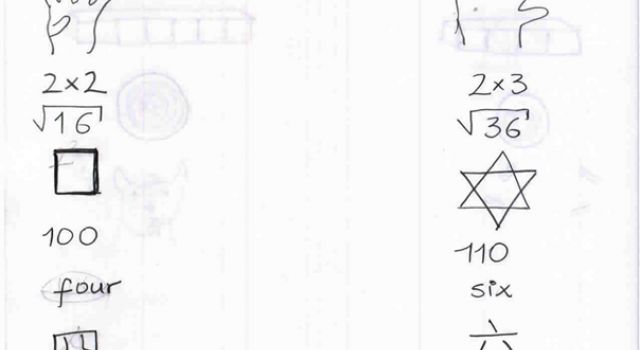 2×2
√16
100
four
2×3
√36
110
six